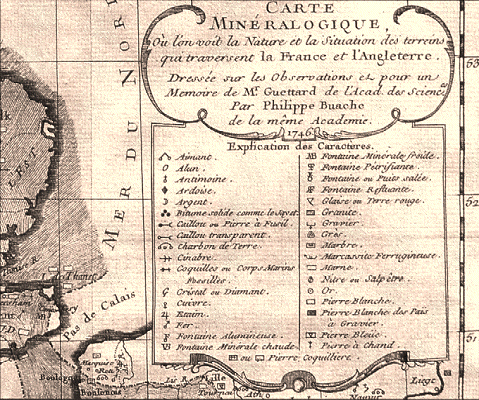 CARTE
MINÉRALOGIQUE,
Où l'on voit la Nature et la Situation des terreins
qui traversent la France et l'Angleterre.
Dressée sur les Observations et pour un
Memoire de Mr. Guettard de l'Acad. des Sciences
Par Philippe Buache
de la même Academie.
1746
Explication des Caracteres.
Aimant.
Alun.
Antimoine.
Ardoise.
Argent.
Bitume solide comme le Sayet.
Caillou ou Pierre à Fusil.
Caillou transparent.
Charbon de Terre.
Cinabre
Coquilles ou Corps Marins
Fossilles.
Cristal ou Diamant.
Cuivre.
Etain.
Fer.
Fontaine Alumineuse.
Fontaine Minérale chaude.
Fontaine Minérale froide.
Fontaine Pétrifiante.
Fontaine ou Puits salée.
Fontaine Refluante.
Glaise ou Terre rouge.
Granite.
Gravier.
Grès.
Marbre.
Marcassite Ferrugineuse.
Marne.
Nitre ou Salpêtre.
Or.
Pierre Blanche.
Pierre Blanche des Pais
à Gravier.
Pierre Bleüe.
Pierre à Chaud.
ou Pierre Coquilliere.
MER DU NOR
L'EST
Pas de Calais
Boulogne
Boulenois
Lille
Tournay
Ath
Liege
53
52
51